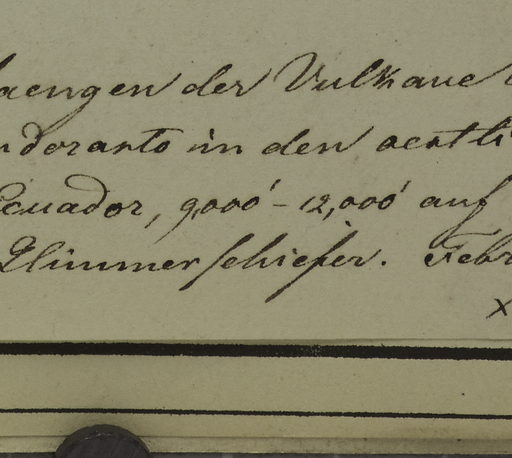 haengen der Vulkane
ndorasto in den oestli
Ecuador, 9,000' - 12,000' auf
Glimmerschiefer. Febr
x